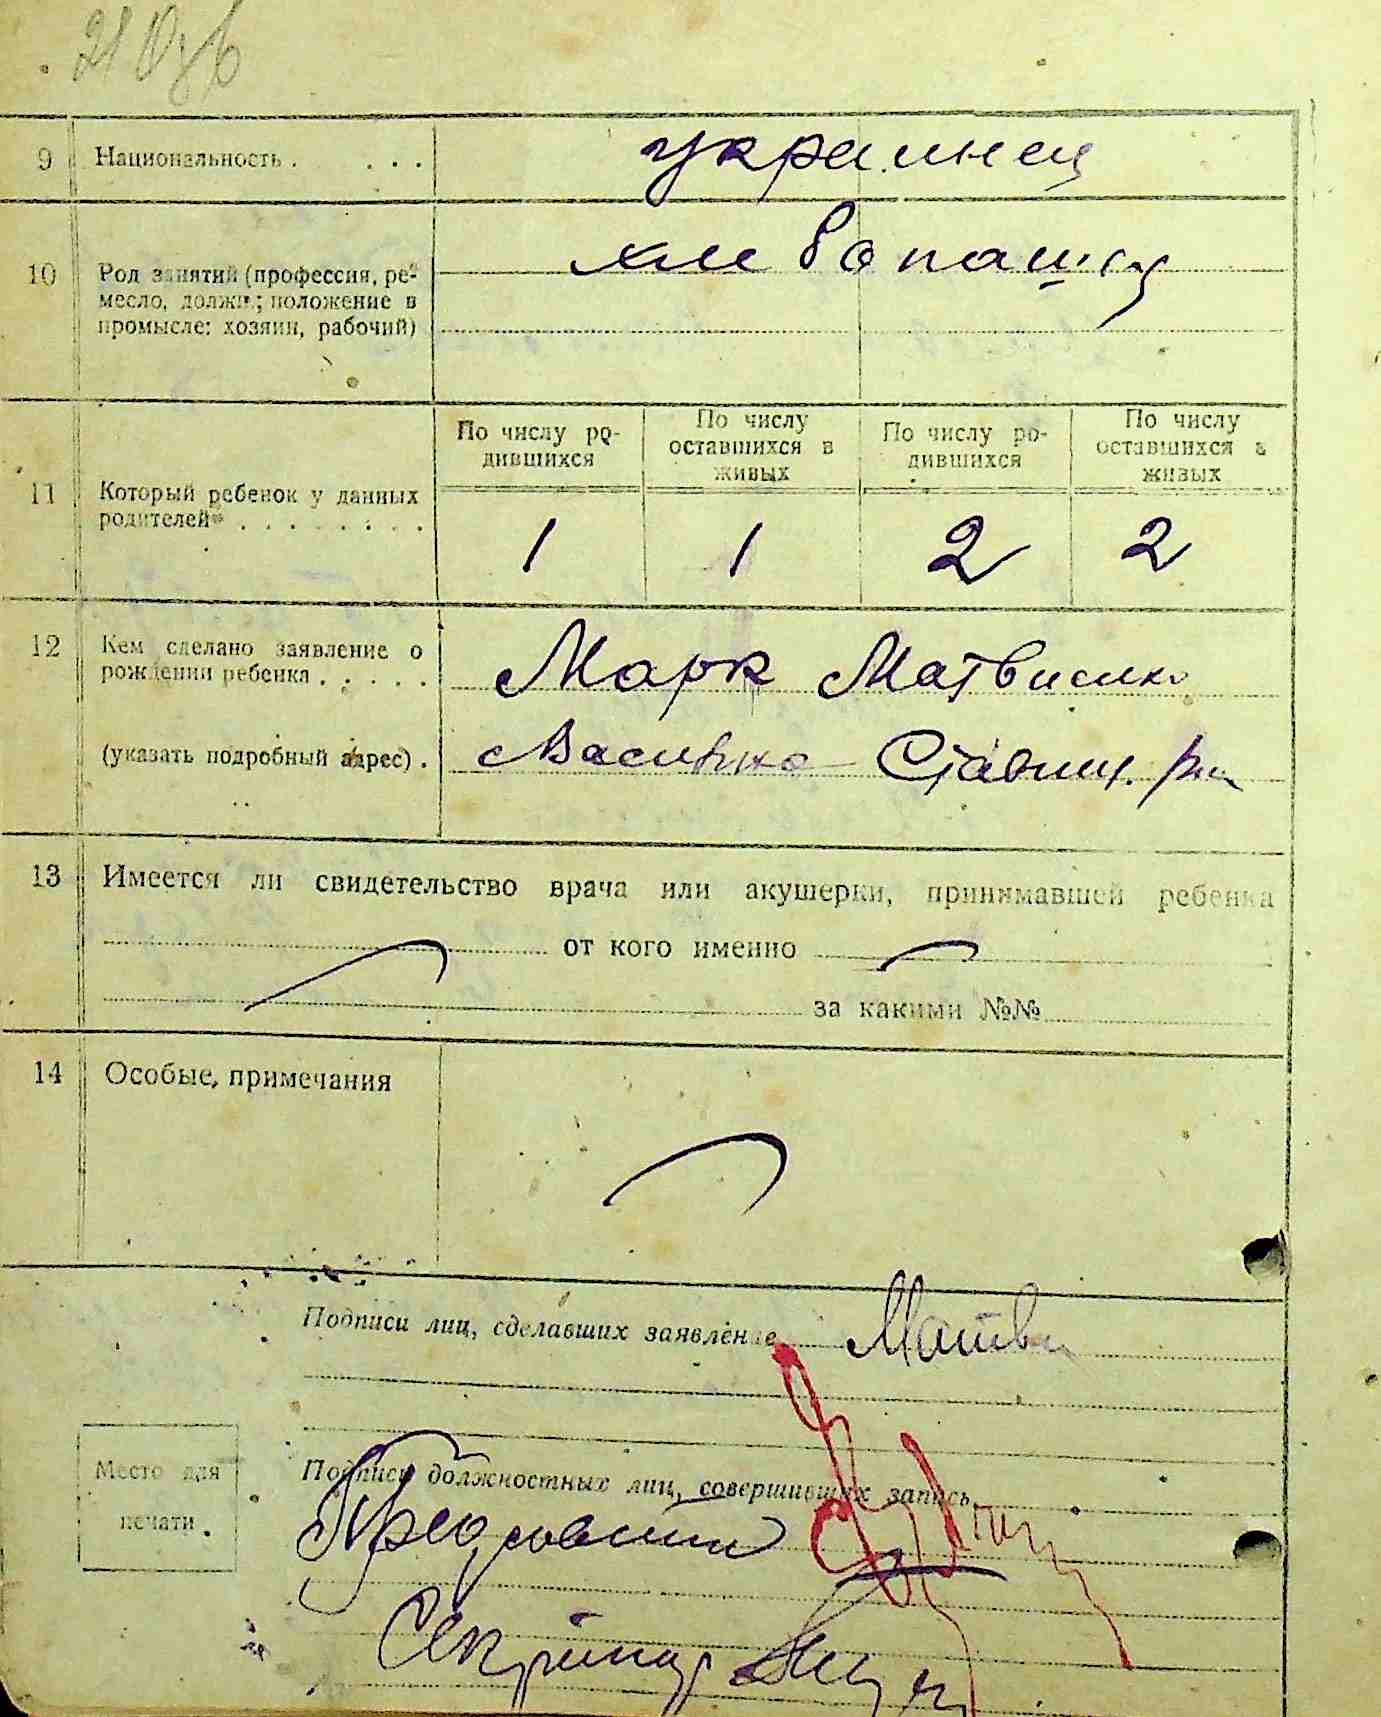 9 Национальность . . . . украинец
10 Род занятий (профессия, ре-
месло, должн.; положение в
промысле: хозяин, рабочий)
хлебопашец
11 Который ребенок у данных
родителей* . . . . . . . .
По числу ро-
дившихся
По числу
оставшихся в
живых
По числу ро-
дившихся
По числу
оставшихся в
живых
1 1 2 2
12 Кем сделано заявление о
рождении ребенка . . . . .
Марк Матвиенко
(указать подробный адрес) .
Василько Ставищ.
13 Имеется ли свидетельство врача или акушерки, принимавшей ребенка
от кого именно
за какими №№
14 Особые примечания
Подписи лиц, сделавших заявление Матви
Подписи должностных лиц, совершивших запись
Место для
печати.
Пред
Секретарь